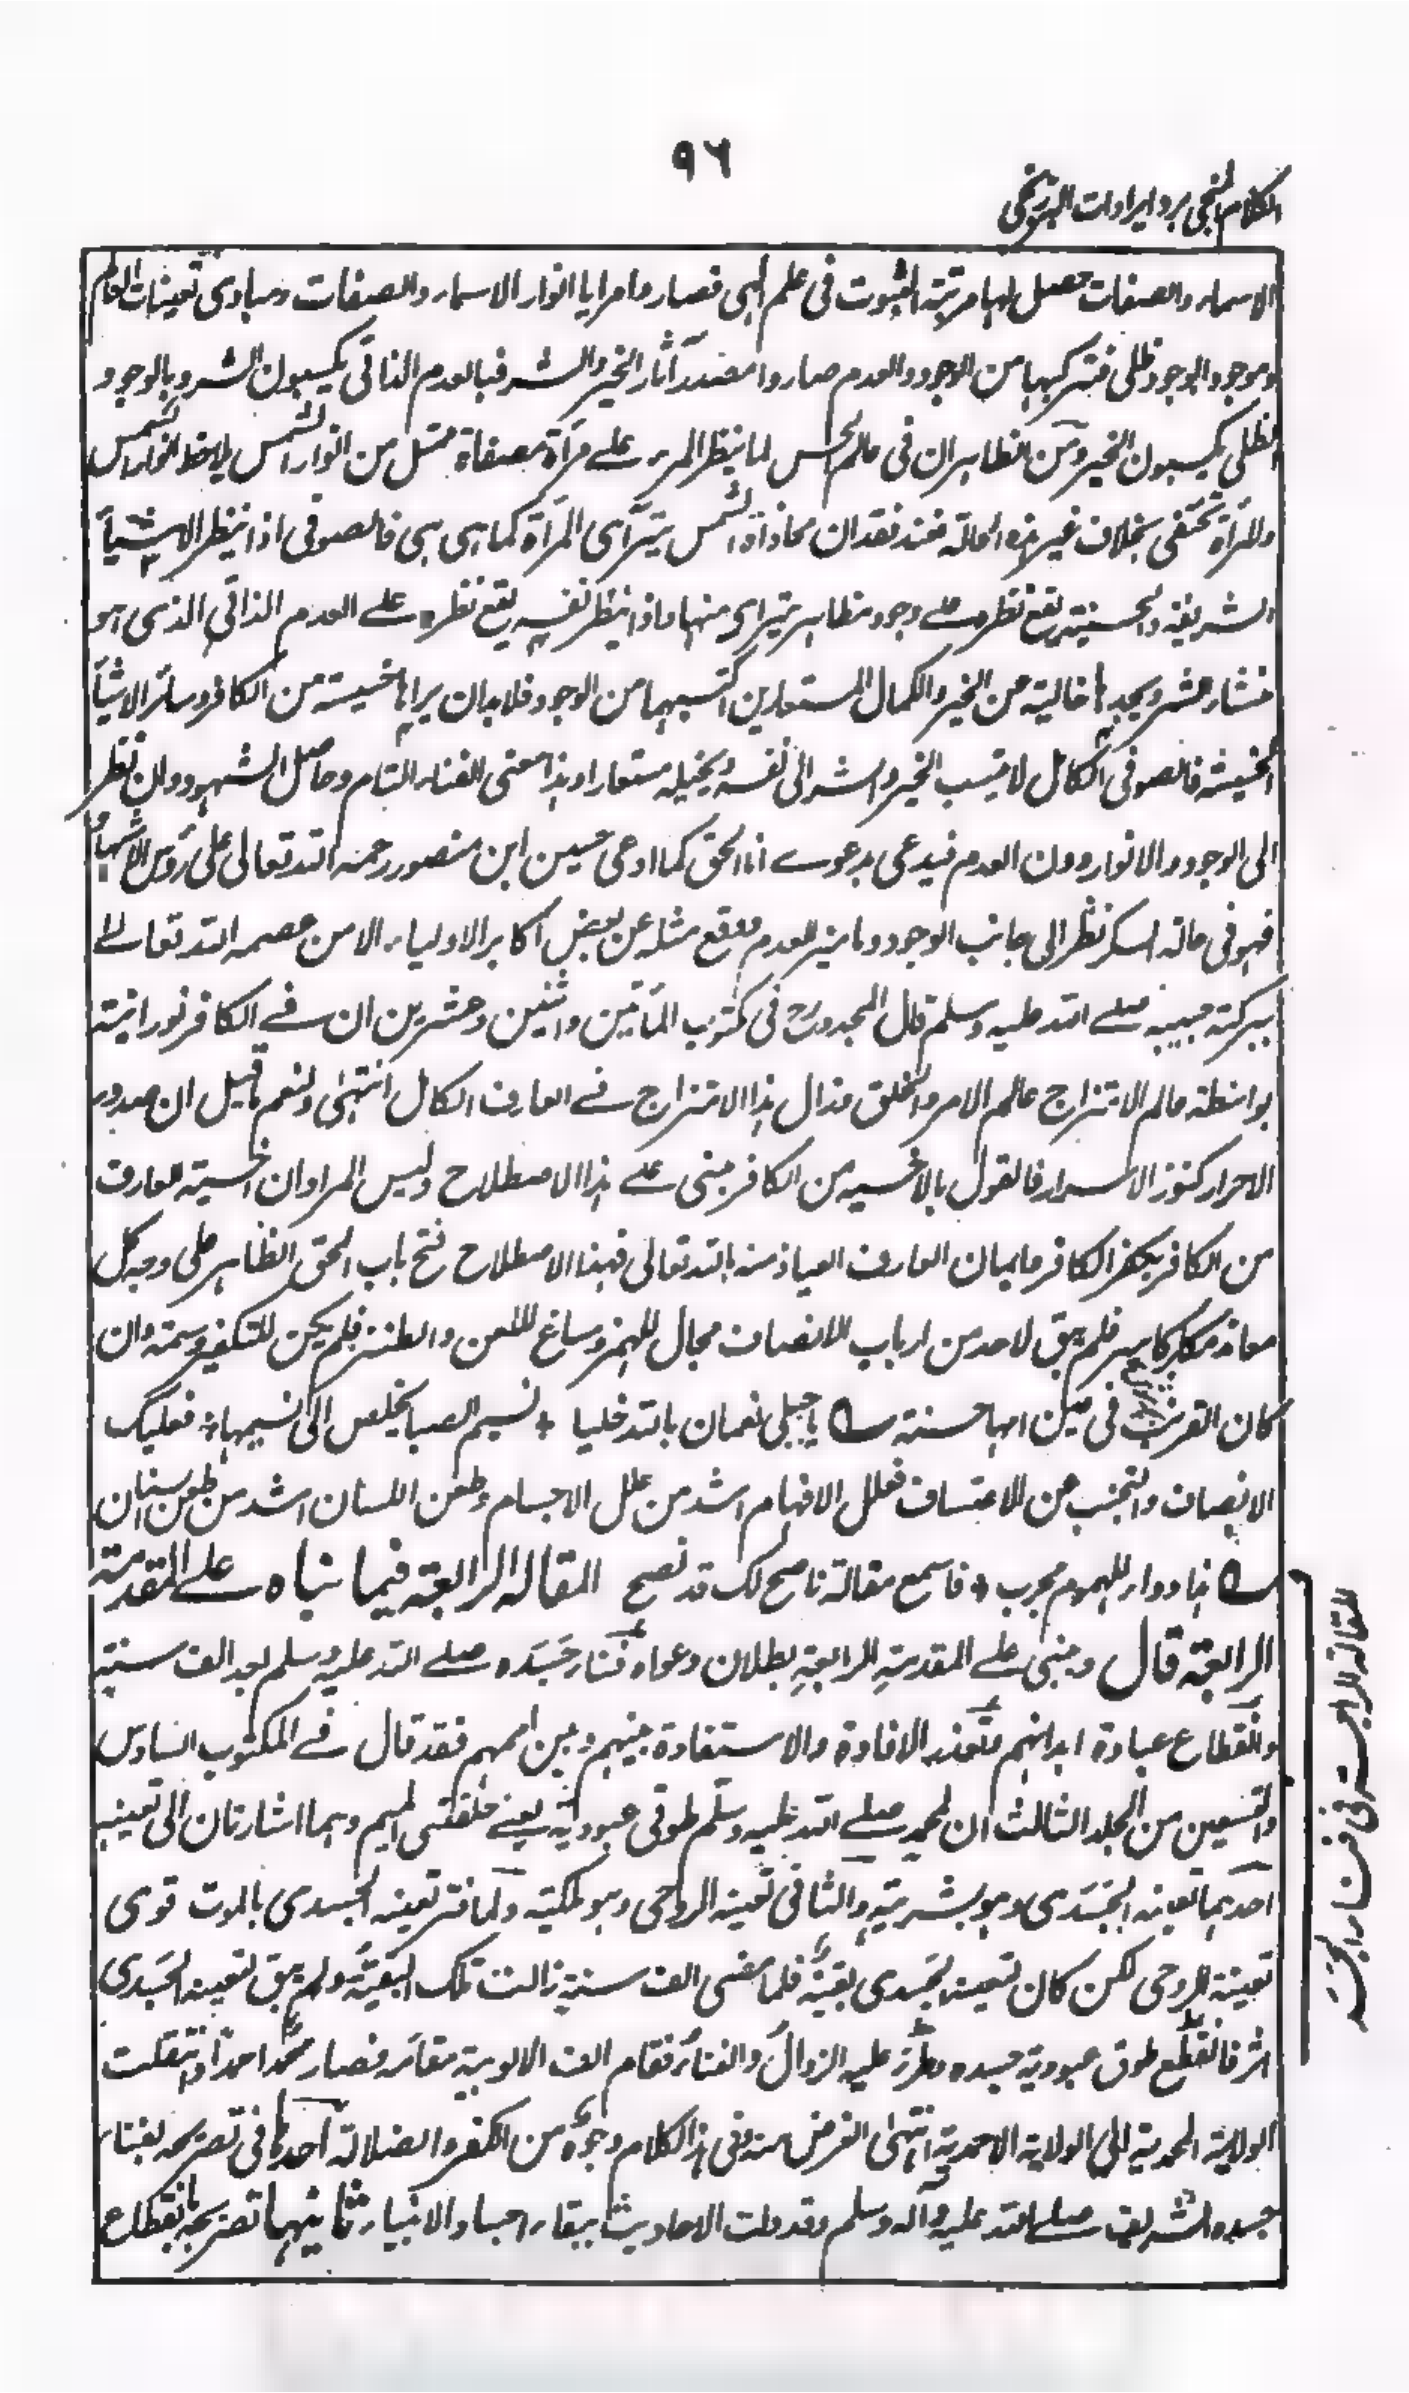 ٩٦
الكلام المنجی برد ایرادات البرزنجی
الاسماء والصفات حصل لها مرتبة الثبوت فی علم الٰهی فصاروا مرایا انوار الاسماء والصفات ومبادی تعینات العالم
وموجود الوجود ظلی فتركبها من الوجود والعدم صاروا مصدر آثار الخیر والشر فبالعدم الذاتی یكسبون الشر وبالوجود
الظلی یكسبون الخیر ومن الظاهر ان فی عالم الحس لما ینظر المرء علی مرآة مصفاة تمتل من انوار الشمس یلاحظ انوار الشمس
والمرآة تختفی بخلاف غیر هذه الحالة فعند فقدان محاذاة الشمس یترآی المرآة كما هی هی فالصوفی اذا ینظر الاشیآء
الشریفة والحسنیة یقع نظره علی وجود مظاهر یترای منها واذا ینظر نفسه یقع نظره علی العدم الذاتی الذی هو
منشأ الشر ویجدها خالیة من الخیر والكمال المستعارین اكتسبهما من الوجود فلا بد ان یراها خسیسة من الكافر وسائر الاشیآء
الخسیسة فالصوفی الكامل لا ینسب الخیر والشر الی نفسه ویخیله مستعارا وهذا معنی الفناء التام وحاصل الشهود ولان نظر
الی الوجود والانوار دون العدم فیدعی بدعوے انا الحق كما ادعی حسین ابن منصور رحمه الله تعالی علی رؤس الاشهاد
فهو فی حالة السكر نظر الی جانب الوجود وما میز العدم ووقع مثله عن بعض اكابر الاولیاء الا من عصمه الله تعالے
ببركة حبیبه صلے الله علیه وسلم قال المجدد رح فی مكتوب المآتین واثنین وعشرین ان فے الكافر نورانیة
بواسطة عالم الامتزاج عالم الامر والخلق وزال هذا الامتزاج فے العارف الكامل انتهی ولنعم ما قیل ان صدور
الاحرار كنوز الاسرار فالقول بالاخسیه من الكافر مبنی علے هذا الاصطلاح ولیس المراد ان اخسیة العارف
من الكافر بكفر الكافر وایمان العارف العیاذ منه بالله تعالی فهذا الاصطلاح فتح باب الحق الظاهر علی وجه كل
معاند مكابر فلم یبق لاحد من ارباب الانصاف مجال للهمز ومساغ للعن والطنز فلم یكن للتكفیر سمة وان
كان القرب فی عین امها حسنة ؎ یا جبلی نعمان بالله خلیا * نسیم الصبا یخلص الی نسیمها * فعلیك
الانصاف والتجنب عن الاعتساف فعلل الافهام اشد من علل الاجسام وطعن اللسان اشد من طعن سنان
؎ هذا دواء للهموم مجرب * فاسمع مقالة ناصح لك قد نصح المقالة الرابعة فیما بناه علے المقدمة
الرابعة قال ومبنی علے المقدمةِ الرابعةِ بطلان دعواه فناء جَسَده صلے الله علیه وسلم بعد الف سنةٍ
وانقطاع عبادة ابدانهم وتعذر الافادة والاستفادة بینهم وبین اممهم فقد قال فے المكتوب السادس
والتسعین من الجلد الثالث ان لمحمد صلے الله علیه وسلم طوقی عبودیة یعنے حلقتی المیم وهما اشارتان الی تعینیه
احدهما تعینه الجَسَدی وهو بشریته والثانی تعینه الروحی وهو ملكیته ولما فتر تعینه الجسدی بالموت قوی
تعینه الروحی لكن كان لتعینه الجسدی بقیةٌ فلما مضی الف سنةٍ زالت تلك البقیةُ ولم یبق لتعینه الجَسَدی
اثر فانقطع طوق عبودیة جسده وطرَء علیه الزوالُ والفناءُ فقام الف الالوهیة مقامه فصار محمد احمد وانتقلت
الولایة المحمدیة الی الولایة الاحمدیة انتهی الغرض منه وفی هذا الكلام وجوهٌ من الكفر والضلالة احدها فی تصریحه بفناء
جسده الشریف صلے الله علیه وآله وسلم وقد دلت الاحادیث ببقاء اجساد الانبیاء ثانیها تصریحه بانقطاع
المقالة الرابعة فی فناء الجسد